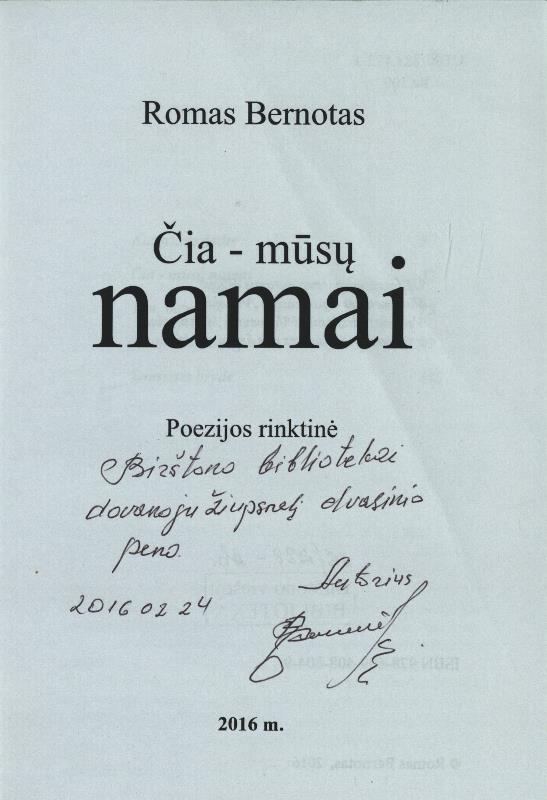 Romas Bernotas
Čia - mūsų
namai
Poezijos rinktinė
Birštono bibliotekai
dovanoju žiupsnelį dvasinio
peno.
Autorius
2016 02 24
2016 m.